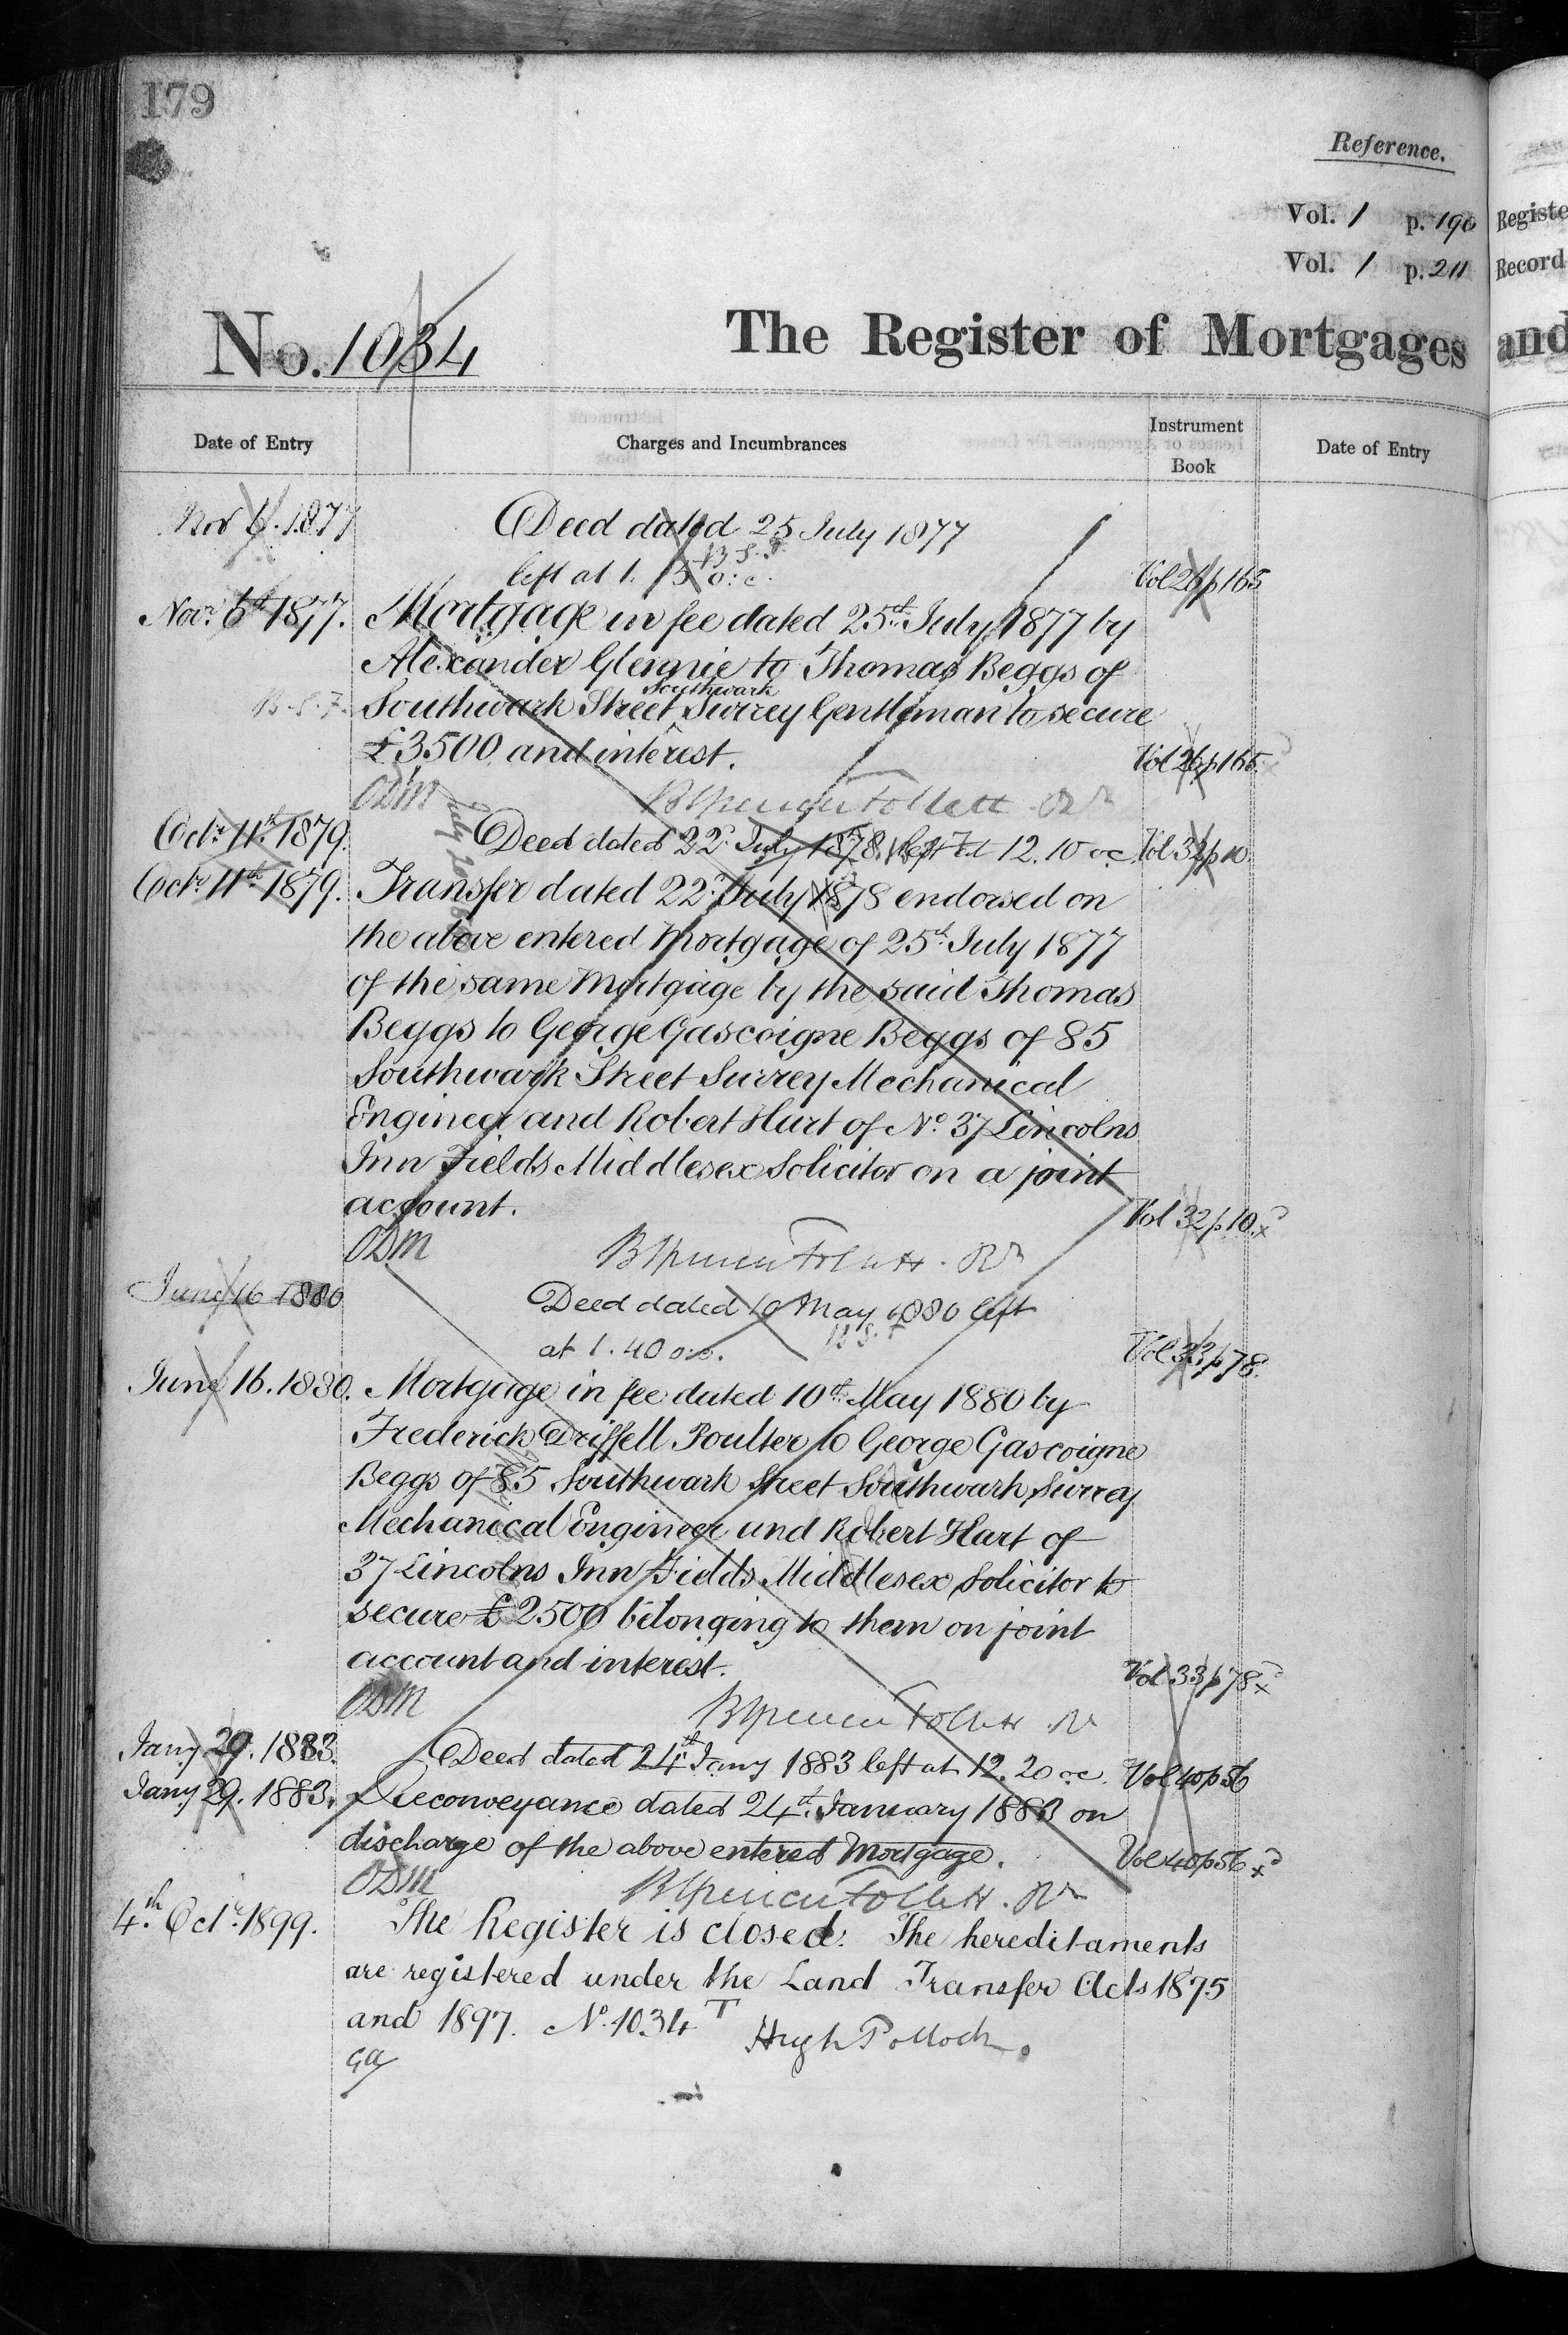 179
Reference.
Vol. 1 p. 190
Vol. 1 p. 211
Registe
Record
No. 1034
The Register of Mortgages and
Date of Entry
Charges and Incumbrances
Instrument
Book
Date of Entry
Nov 6. 1877
Deed dated 25 July 1877
left at 1. 15 o:c.
B.S.F.
Vol 26 p 165
Novr. 6th 1877. Mortgage in fee dated 25th July 1877 by
Alexander Glennie to Thomas Beggs of
B.S.F. Southwark Street Southwark Surrey Gentleman to secure
£3500 and interest. Vol 26 p 165
ODM BSpencer Follett. Rr
Octr. 11th 1879. Deed dated 22d July 1878. left at 12.10 oc Vol 32 p 10
Octr. 11th 1879. Transfer dated 22d July 1878 endorsed on
the above entered Mortgage of 25th July 1877
of the same Mortgage by the said Thomas
Beggs to George Gascoigne Beggs of 85
Southwark Street Surrey Mechanical
Engineer and Robert Hart of No. 37 Lincolns
Inn Fields Middlesex Solicitor on a joint
account. Vol 32 p 10
ODM BSpencer Follett. Rr
June 16 1880 Deed dated 10 May 1880 left
at 1.40 o:c. B.S.F Vol 33 p 78.
June 16. 1880. Mortgage in fee dated 10th May 1880 by
Frederick Driffell Poulter to George Gascoigne
Beggs of 85 Southwark Street Southwark Surrey
Mechanical Engineer and Robert Hart of
37 Lincolns Inn Fields Middlesex Solicitor to
secure £2500 belonging to them on joint
account and interest. Vol 33 p 78
ODM BSpencer Follett Rr
Jany 29. 1883. Deed dated 24th Jany 1883 left at 12.20 oc. Vol 40 p 56
Jany 29. 1883. Reconveyance dated 24th January 1883 on
discharge of the above entered Mortgage. Vol 40 p 56
ODM BSpencer Follett. Rr
4th Octr. 1899. The Register is closed. The hereditaments
are registered under the Land Transfer Acts 1875
and 1897. No. 1034 T Hugh Pollock.
GA